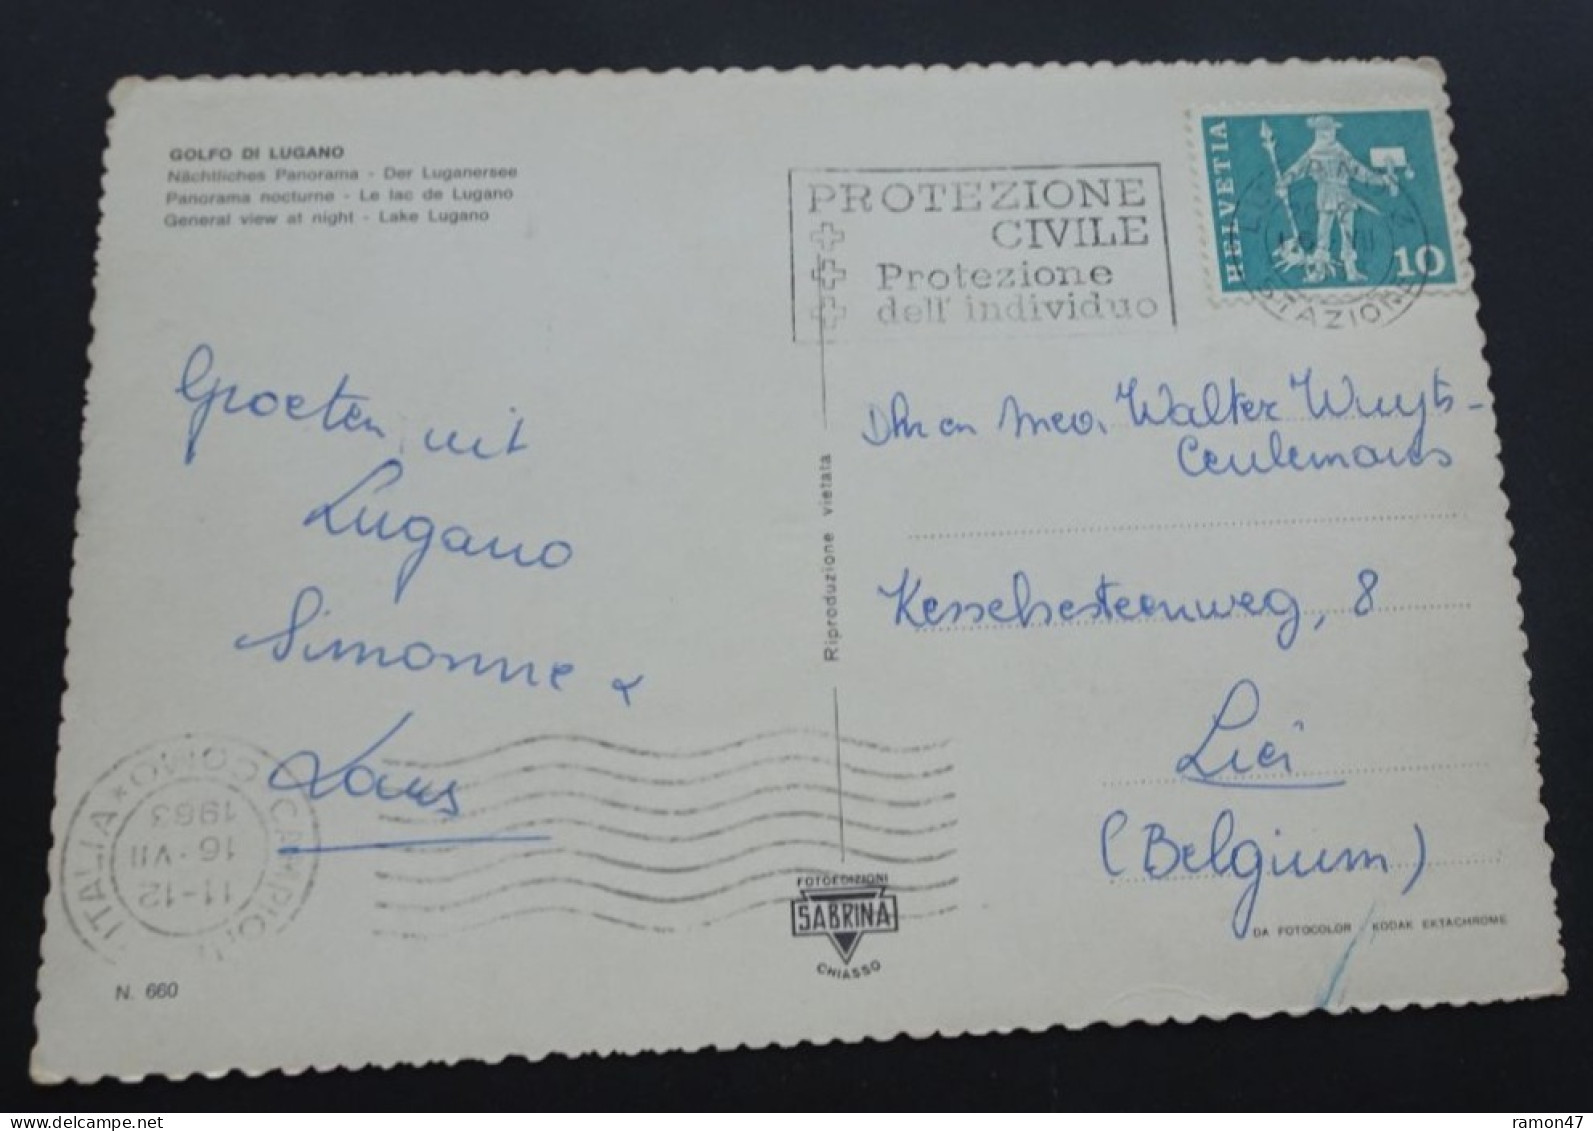 GOLFO DI LUGANO
Nächtliches Panorama - Der Luganersee
Panorama nocturne - Le lac de Lugano
General view at night - Lake Lugano
PROTEZIONE
CIVILE
Protezione
dell' individuo
HELVETIA
10
STAZIONE
Groeten uit
Lugano
Simonne &
Dhr en Mev. Walter Wuyts-
Ceulemans
Riproduzione vietata
8
(Belgium)
ITALIA * COMO * CAMPIONE
11-12
16·VII
1963
FOTOEDIZIONI
SABRINA
CHIASSO
DA FOTOCOLOR KODAK EKTACHROME
N. 660
www.delcampe.net
ramon47